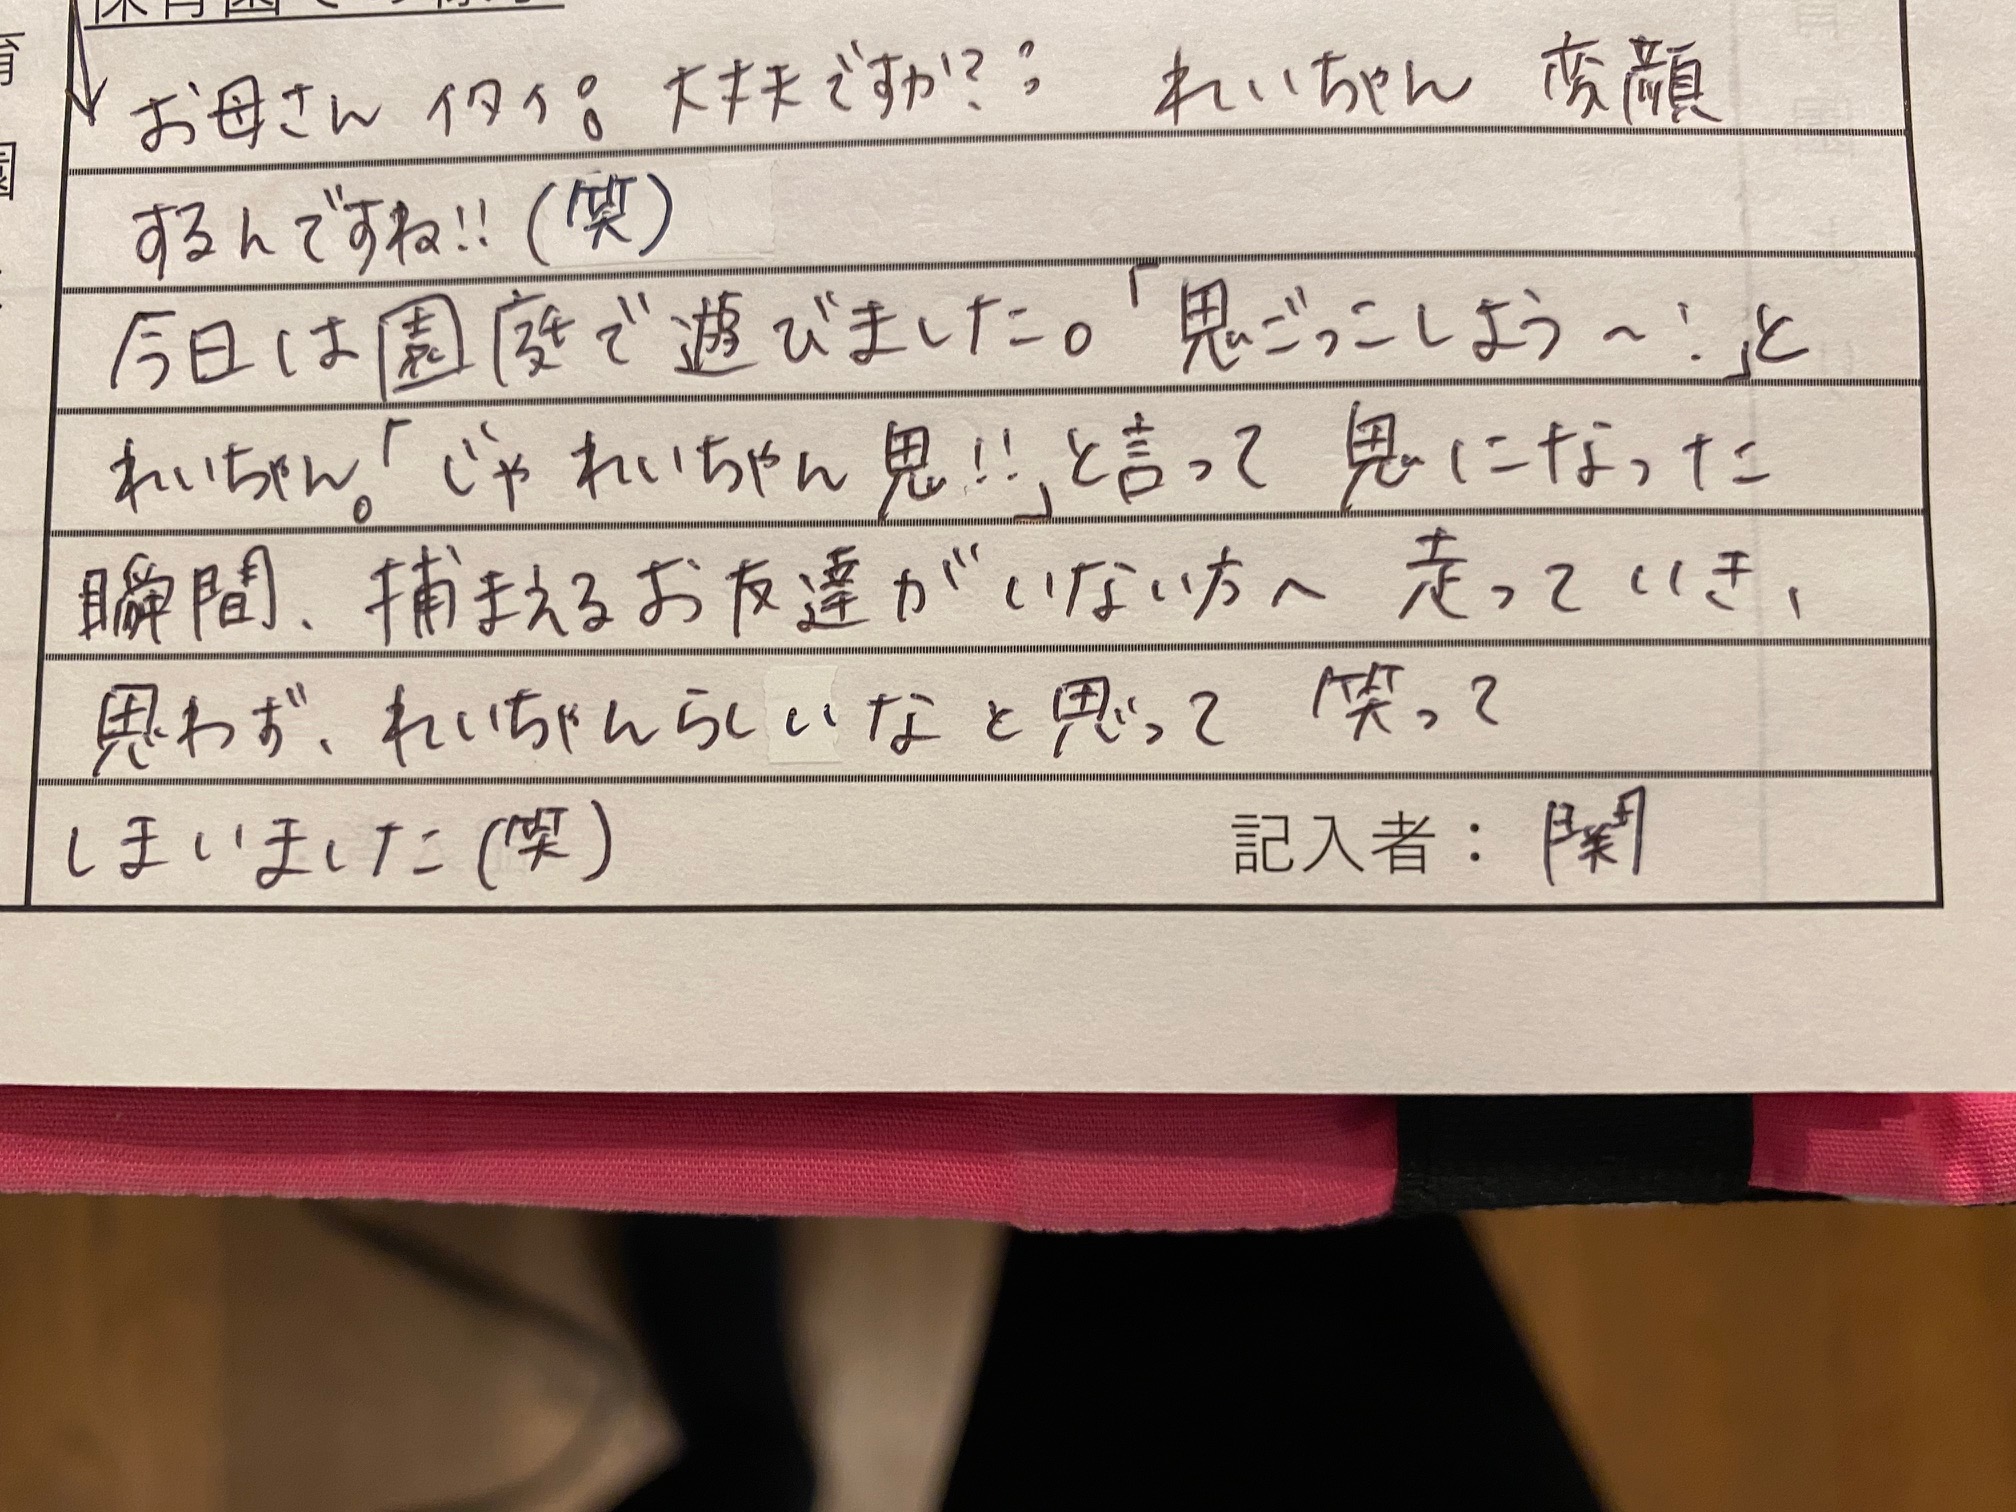 お母さんイタイ。大丈夫ですか!? れいちゃん 変顔
するんですね!!(笑)
今日は園庭で遊びました。「鬼ごっこしよう〜!」と
れいちゃん。「じゃれいちゃん鬼!!」と言って 鬼になった
瞬間、捕まえるお友達がいない方へ 走っていき、
思わず、れいちゃんらしいなと思って 笑って
しまいました(笑)
記入者：関